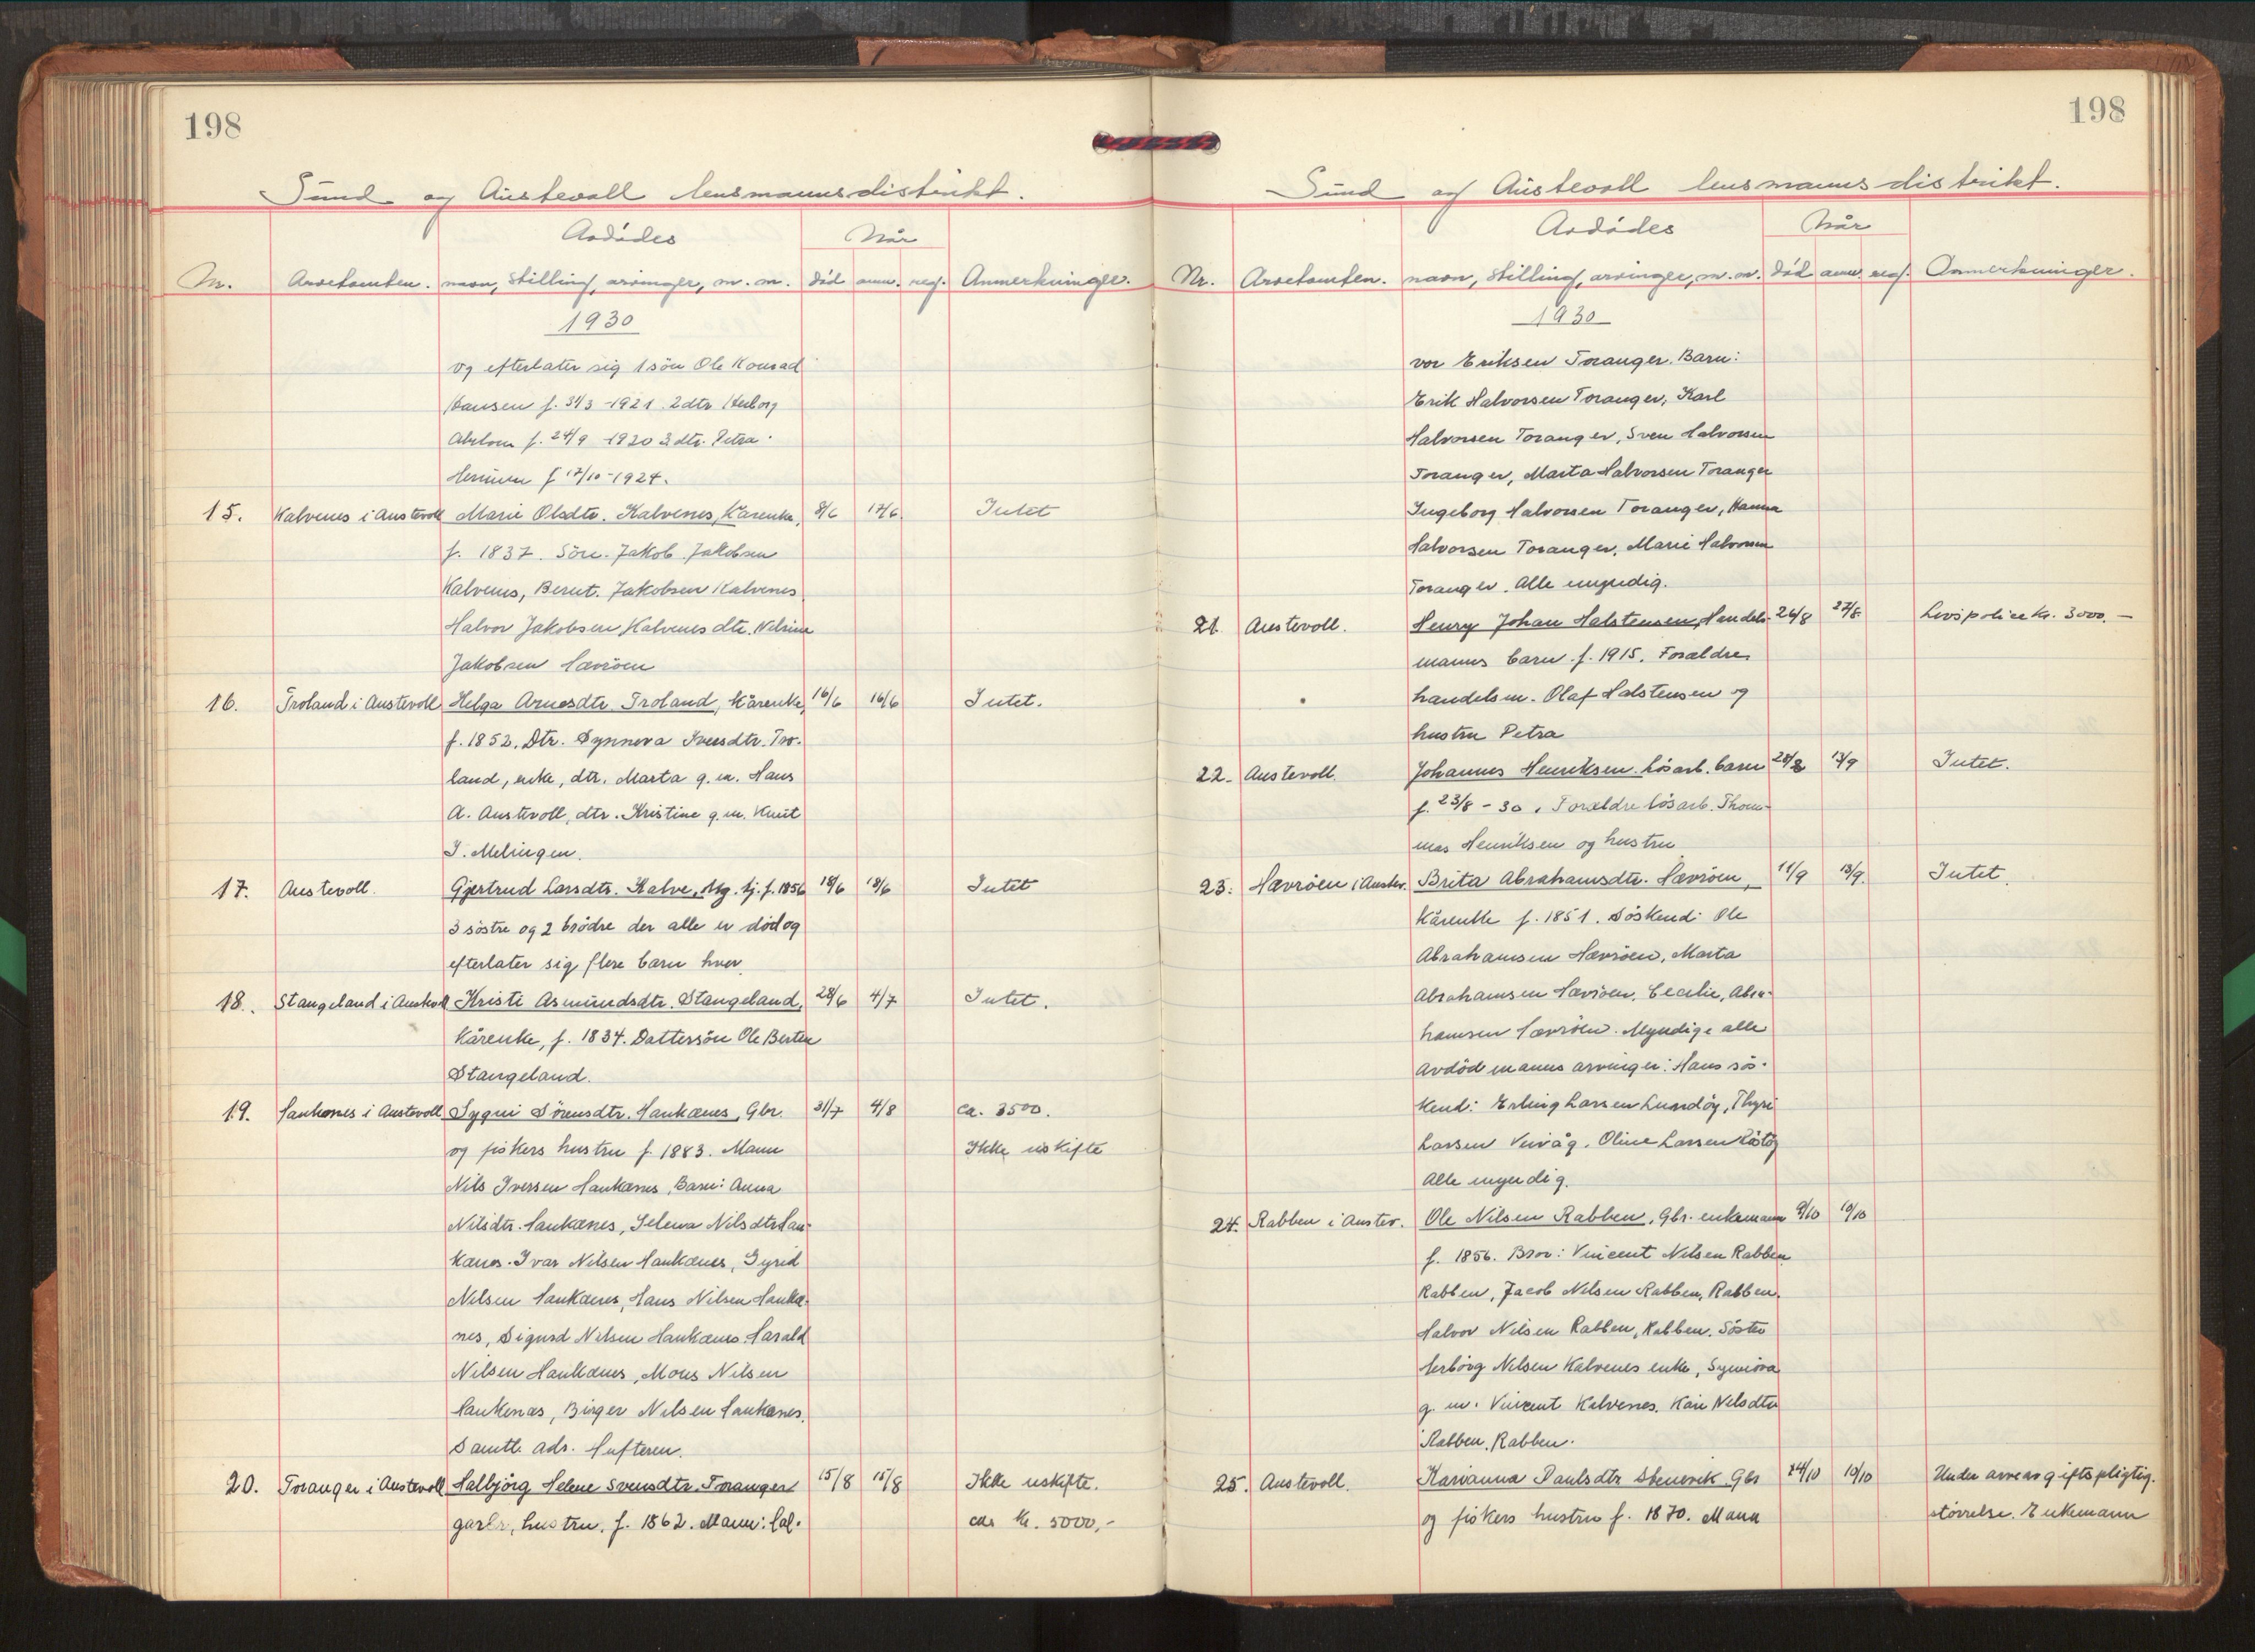 198
Sund og Austevoll lensmannsdistrikt.
Avdödes
Når
Nr. Arvetomten. navn, stilling, arvinger, m. m. död anm. reg. Anmerkninger.
1930
og efterlater sig 1 sön Ole Konrad
Hansen f. 31/3 - 1921. 2 dtr Herborg
f. 24/9 - 1920 3 dtr. Petra
f 17/10 - 1924.
15. Kalvenes i Austevoll Marie Olsdtr. Kalvenes, Kårenke, 8/6 17/6 Intet
f. 1837. Sön. Jakob Jakobsen
Kalvenes, Bernt. Jakobsen Kalvenes
Halvor Jakobsen Kalvenes dtr. Nelsine
Jakobsen Hævröen
16. Troland i Austevoll Helga Arnesdtr Troland, Kårenke, 16/6 16/6 Intet.
f. 1852. Dtr. Synneva Iversdtr. Tro-
land, enke, dtr. Marta g. m. Hans
A. Austevoll, dtr. Kristine g. m. Knut
I. Melingen.
17. Austevoll. Gjertrud Larsdtr. Kalve, ug. tj. f. 1856 18/6 18/6 Intet
3 söstre og 2 brödre der alle er död og
efterlater sig flere barn hver.
18. Stangeland i Austevoll Kristi Asmundsdtr. Stangeland, 28/6 4/7 Intet.
Kårenke, f. 1834. Dattersön Ole Berten
Stangeland.
19. Haukanes i Austevoll Sygni Sörensdtr. Haukanes, Gbr. 31/7 4/8 ca. 3500.
og fiskers hustru f. 1883. Mann Ikke uskifte
Nils Iversen Haukanes, Barn: Anna
Nilsdtr. Haukanes, Selena Nilsdtr Hau-
kanes. Ivar Nilsen Haukanes, Gyrid
Nilsen Haukanes, Hans Nilsen Hauka-
nes, Sigurd Nilsen Haukanes Harald
Nilsen Haukanes, Mons Nilsen
Haukenas, Birger Nilsen Haukanes.
Samtl. adr. Hufteren.
20. Toranger i Austevoll Halbjörg Helene Svensdtr. Toranger 15/8 15/8 Ikke uskifte.
garbr, hustru, f. 1862. Mann: Hal- ca. kr. 5000,-
198
Sund og Austevoll lensmannsdistrikt.
Avdödes
Når
Nr. Arvetomten. navn, stilling, arvinger, m. m. död anm. reg. Anmerkninger.
1930
vor Eriksen Toranger. Barn:
Erik Halvorsen Toranger, Karl
Halvorsen Toranger, Sven Halvorsen
Toranger, Marta Halvorsen Toranger
Ingeborg Halvorsen Toranger, Hanna
Halvorsen Toranger, Marie Halvorsen
Toranger. Alle myndig.
21. Austevoll. Henry Johan Halstensen, Handels- 26/8 27/8. Livspolice kr. 3000.-
manns barn. f. 1915. Foraldre
handelsm. Olaf Halstensen og
hustru Petra
22. Austevoll. Johannes Henriksen. lösarb. barn 28/8 13/9 Intet.
f. 23/8 - 30. Foraldre lösarb. Thom-
mas Henriksen og hustru
23. Hævröen i Austev. Brita Abrahamsdtr. Hævröen, 11/9 13/9. Intet.
Kårenke f. 1851. Söskend: Ole
Abrahamsen Hævröen, Marta
Abrahamsen Hævröen, Cecilie, Abra-
hamsen Hævröen. Myndige alle
Avdöd manns arvinger: Hans sös-
kend: Erling Larsen Lundöy, Thyri
Larsen Veivåg, Oline Larsen
Alle myndig.
24. Rabben i Austev. Ole Nilsen Rabben, Gbr. enkemann 9/10 10/10
f. 1856. Bror: Vincent Nilsen Rabben
Rabben, Jacob Nilsen Rabben, Rabben.
Halvor Nilsen Rabben, Rabben. Söster
Herborg Nilsen Kalvenes enke, Synnöva
g. m. Vincent Kalvenes. Kari Nilsdtr
Rabben, Rabben.
25. Austevoll. Karianna Paulsdtr Stenevik. Gbr 24/10 10/10 Under arveavgiftspligtig.
og fiskers hustru f. 1870. Mann störrelse. Enkemann